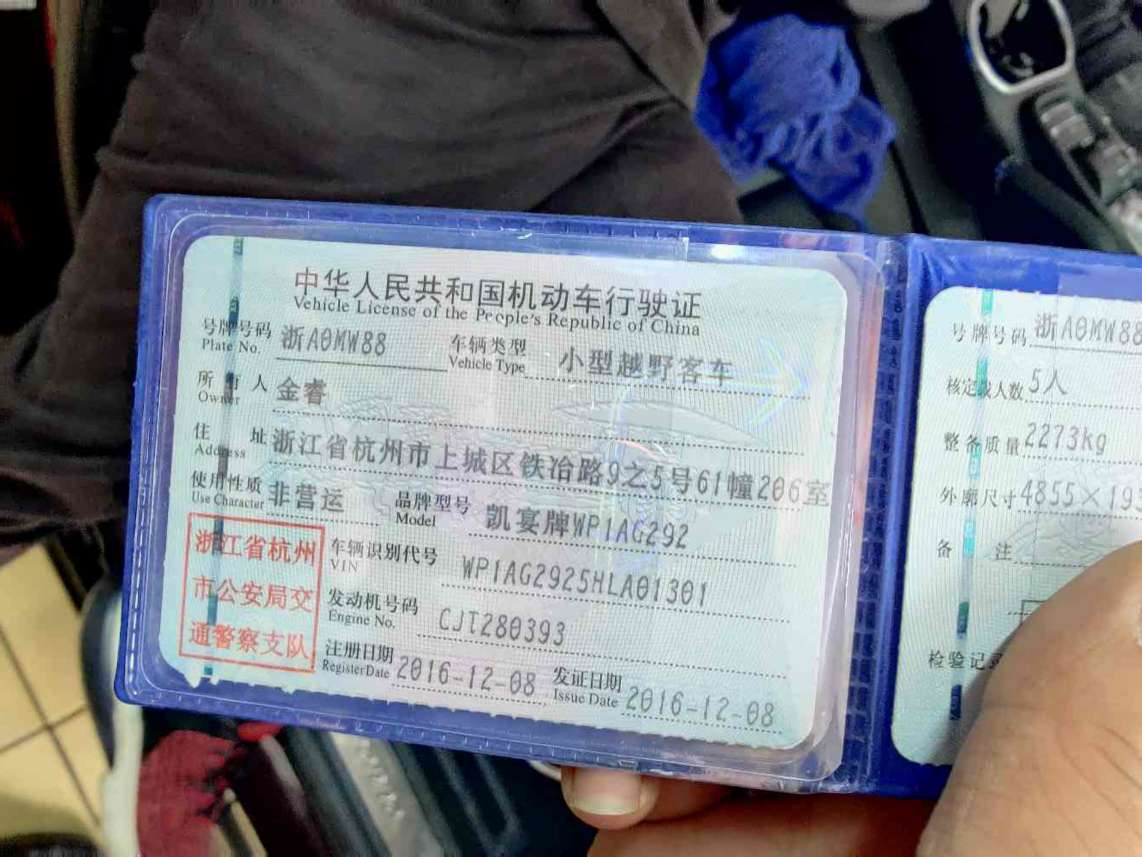 中华人民共和国机动车行驶证
Vehicle License of the People's Republic of China
号牌号码 浙A0MW88 车辆类型 小型越野客车
Plate No. Vehicle Type
所有人 金睿
Owner
住址 浙江省杭州市上城区铁冶路9之5号61幢206室
Address
使用性质 非营运 品牌型号 凯宴牌WP1AG292
Use Character Model
浙江省杭州
市公安局交
通警察支队
车辆识别代号 WP1AG2925HLA01301
VIN
发动机号码 CJT280393
Engine No.
注册日期 2016-12-08 发证日期 2016-12-08
Register Date Issue Date
号牌号码 浙A0MW88
核定载人数 5人
整备质量 2273kg
外廓尺寸 4855×19
备注
检验记